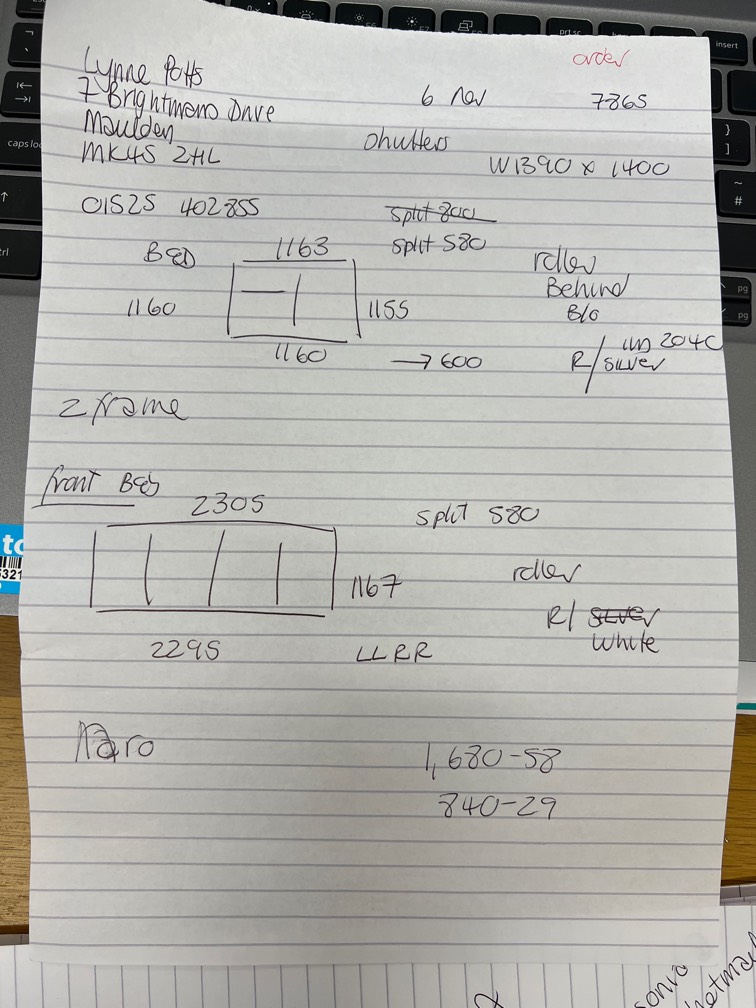 order
Lynne Potts
6 Nov 7865
7 Brightmans Drive
Maulden
Shutters
MK45 2HL
W1390 x 1400
01525 402855
split 800
split 580
Bed
1163
1160
1155
1160
→ 600
roller
Behind
B/o
un 204C
R/ silver
Z frame
front Bed
2305
split 580
1167
roller
R/ silver
White
2295
LLRR
1,680-58
840-29
caps loc
insert
prt sc
pg
pg
sonia